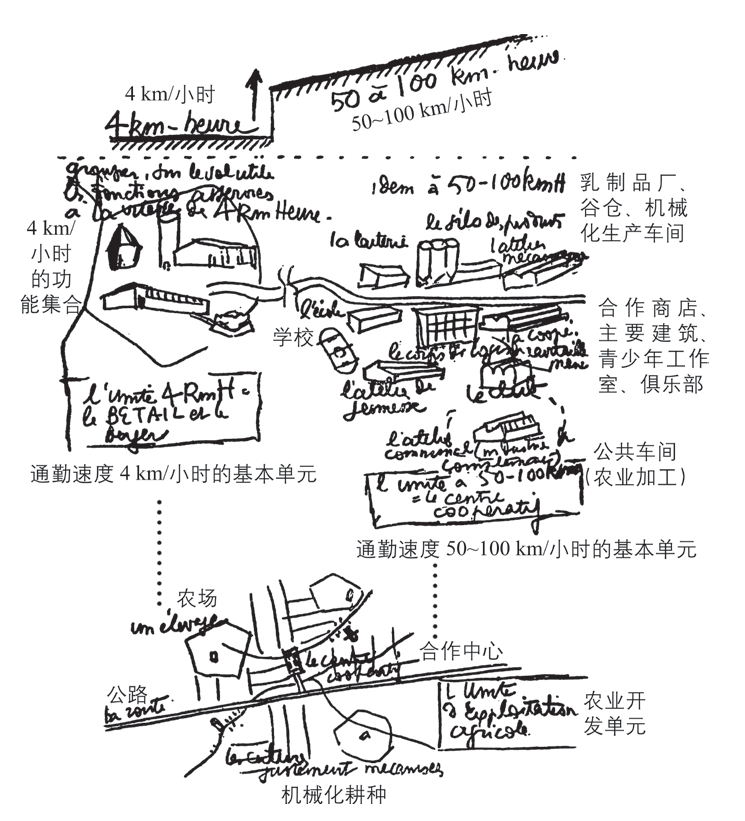 4 km/小时
4 km-heure
50 à 100 km-heure
50~100 km/小时
grouper, sur le sol utile
les fonctions asservies
à la vitesse de 4 Km Heure.
idem à 50-100 kmH
乳制品厂、
谷仓、机械
化生产车间
4 km/
小时
的功
能集合
la laiterie
le silo des produits
l'atelier
mécanique
l'école
学校
coopé.
合作商店、
主要建筑、
青少年工作
室、俱乐部
l'atelier de
jeunesse
le club
l'unité 4 KmH =
le BETAIL et le
berger
通勤速度 4 km/小时的基本单元
l'atelier
communal (industrie
公共车间
(农业加工)
l'unité à 50-100 Kms
= le centre
coopératif
通勤速度 50~100 km/小时的基本单元
农场
un élevage
le centre
coopératif
合作中心
公路
la route
L'Unité
d'Exploitation
agricole.
农业开
发单元
les cultures
justement mécanisées
机械化耕种